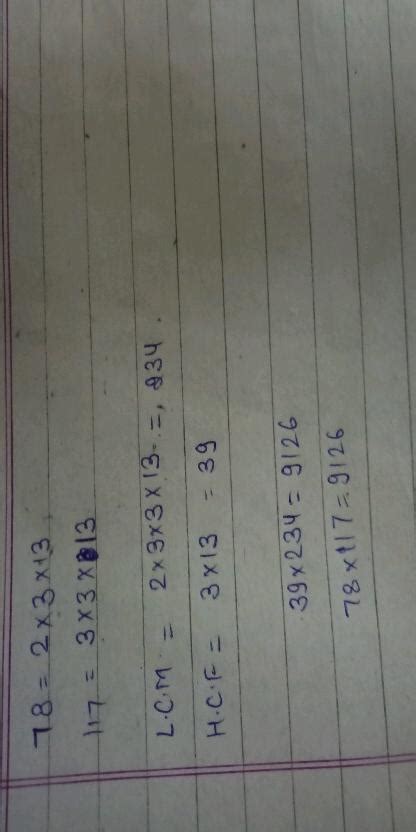 78 = 2×3×13
117 = 3×3×13
L.C.M = 2×3×3×13 = 234.
H.C.F = 3×13 = 39
39×234 = 9126
78×117 = 9126